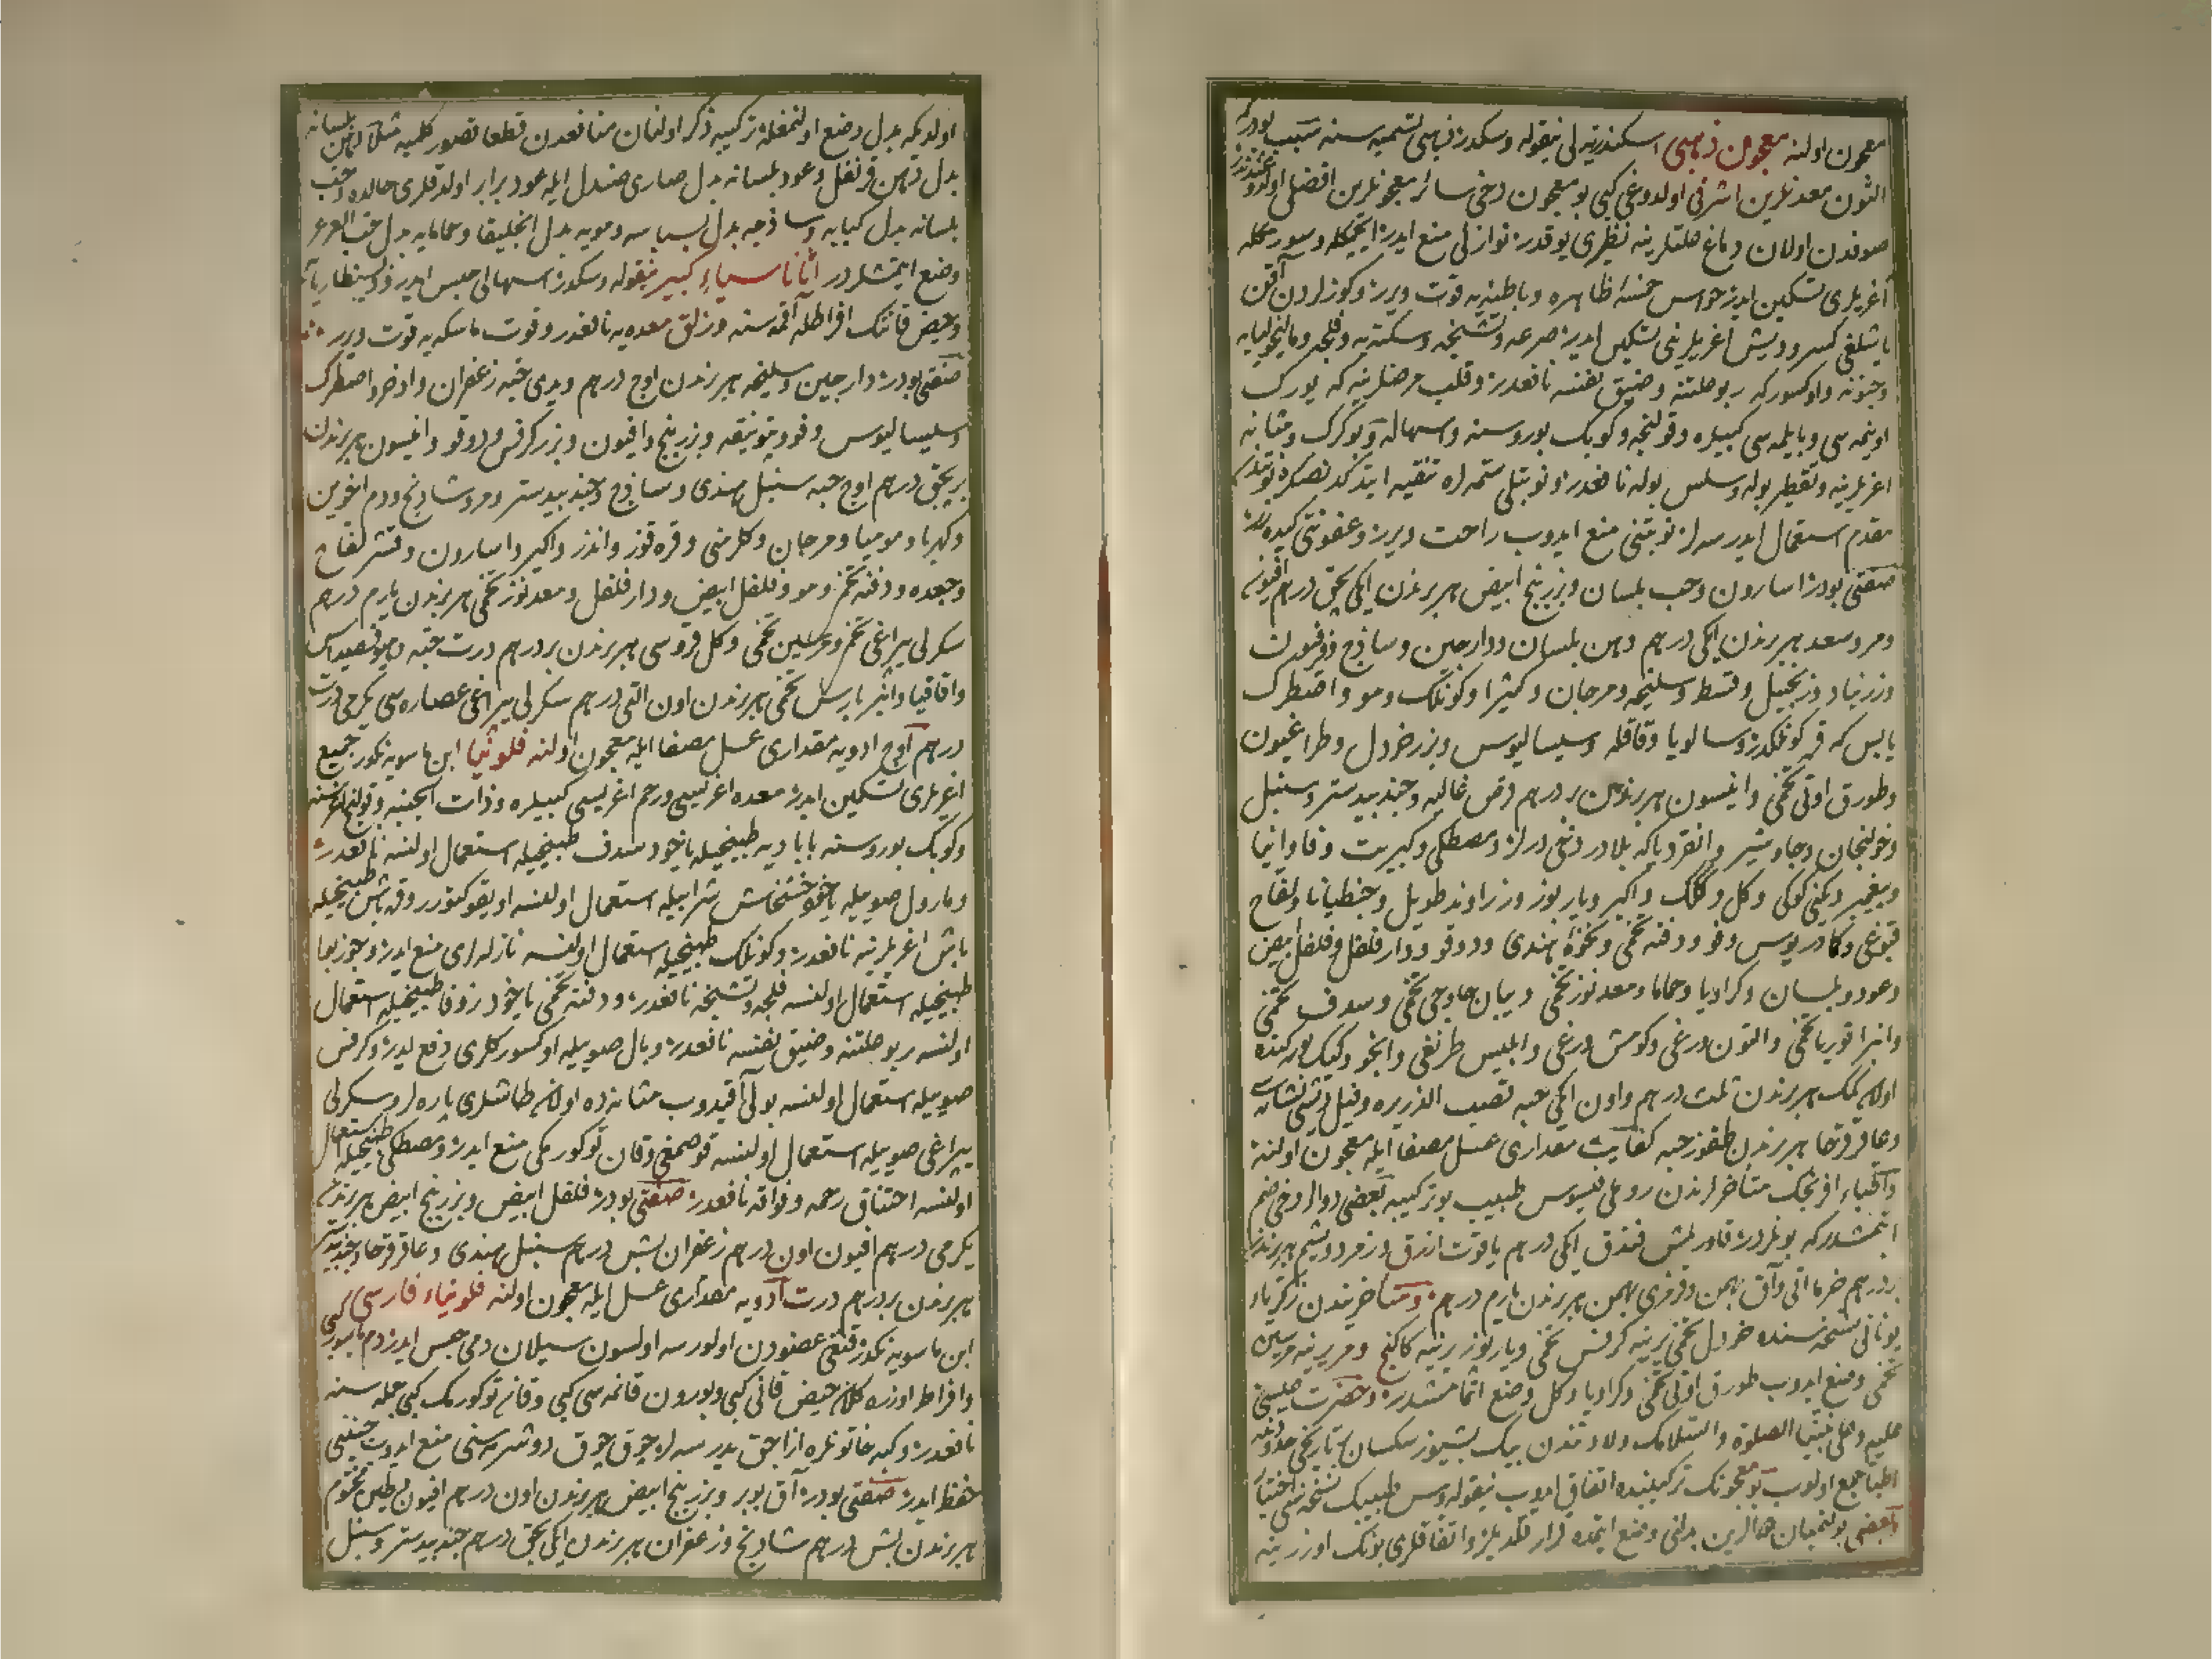 معجون اولنه معجون ذهبی اسکندریه لی نیقوله وسکدر ذهبی تسمیه سنه سبب بودرکه
التون معدنلرین اشرفی اولدوغی کبی بو معجون دخی سائر معجونلرین افضلی اولدوغندندر
صوغدن اولان دماغ علتلرینه نظیری یوقدر نوازلی منع ایدر
اغریلری تسکین ایدر حواس خمسهٔ ظاهره وباطنه یه قوت ویرر وکوزلردن آقن
یاشلغی کسر ودیش اغریلرینی تسکین ایدر صرعه وتشنجه وسکته یه وفلجه ومالیخولیایه
وجنونه واوکسورکه ربو علتنه وضیق نفسه نافعدر وقلب مرضلرینه که یورک
اوینمه سی وبایلمه سی کبیلره وقولنجه وکوبک بوروسنه واسهاله وبوکرک ومثانه
اغریلرینه وتقطیر بوله وسلس بوله نافعدر نوبتلی ستمه لره تنقیه ایتدکدنصکره نوبتدن
مقدم استعمال ایدرسه لر نوبتنی منع ایدوب راحت ویرر وعفونتی کیدرر
صنعتی بودر اسارون وحب بلسان وبزر بنج ابیض هر برندن ایکی بچق درهم افیون
ومر وسعد هر برندن ایکی درهم دهن بلسان ودارچین وساذج وفرفیون
وزرنباد وزنجبیل وقسط وسلیخه ومرجان وکثیرا وکونلک ومو واصطرک
یابس که قره کونلکدر وسالویا وقاقله وسیسالیوس وبزر خردل وطراغیون
وطورق اوتی تخمی وانیسون هر برندن بر درهم قرص غالیه وجندبیدستر وسنبل
وخولنجان وجاوشیر وانقردیا که بلادر دخی درلر ومصطکی وکبریت وفاوانیا
وکل وکلنک واکیر ویارپوز وزراوند طویل وجنطیانا ولفاح
قبوغی وکمادریوس وفو ودفنه تخمی وبخور هندی ودوقو ودار فلفل وفلفل ابیض
وعود بلسان وکراویا وحماما ومعدنوز تخمی ویبان هاوجی تخمی وسدف تخمی
والتون ورغی وکومش ورغی وابلیس طرنغی وانجو وکیک یورکنده
اولان کمک هر برندن ثلث درهم واون ایکی حبه قصب الذریره وفیل دیشی نشاره سی
وعاقرقرحا هر برندن طقوز حبه کفایت مقداری عسل مصفا ایله معجون اولنه
واطباء افرنجک متأخرلرندن طبیب بو ترکیبه بعضی دوالر دخی ضم
اتمشدرکه بونلردر قاورلمش فندق ایکی درهم یاقوت ازرق وزمرد ویشم هر برندن
بر درهم خرما اتی وآق بهمن وقزی بهمن هر برندن یارم درهم ومتأخریندن زکریاء
یونانی نسخه سنده خردل تخمی یرینه کرفس تخمی ویارپوز یرینه کاکنج ومر یرینه مرسین
تخمی وضع ایدوب طورق اوتی تخمی وکراویا وکل وضع اتمامشدر وحضرت عیسی
علیه وعلی نبینا الصلوة والسلامک ولادتندن بیک بشیوز سکسان تاریخی حدودنده
اطبا جمع اولوب بو معجونک ترکیبنده اتفاق ایدوب نیقولاوس طبیبک نسخه سنی اختیار
بعضی بولنمیان دوالرین بدلنی وضع ایتمده قرار قلدیلر واتفاقلری بونک اوزرینه
اولدیکه بدل وضع اولنمغله ترکیبه ذکر اولنان منافعدن قطعا قصور کلمیه مثلا دهن بلسانه
بدل دهن قرنفل وعود بلسانه بدل صاری صندل ایله عود برابر اولدقلری حالده وحب
بلسانه بدل کبابه وساذجه بدل بسباسه ومویه بدل انجلیقا وحمامایه بدل حب العرعر
وضع ایتمشلردر اثاناسیاء کبیر نیقوله وسکدر اسهالی حبس ایدر
وحیض قاننک افراطله آقمه سنه وزلق معده یه نافعدر وقوت ماسکه یه قوت ویرر
صنعتی بودر دارچین وسلیخه هر برندن اوچ درهم ویدی حبه زعفران واذخر واصطرک
وسیسالیوس وفو وبزر بنج وافیون وبزر کرفس ودوقو وانیسون هر برندن
بر بچق درهم اوچ حبه سنبل هندی وساذج وجندبیدستر ومر وشادنج ودم اخوین
وکهربا ومومیا ومرجان وکلرمنی وقره قوز واذخر واکیر واسارون وقشر لفاح
وجعده ودفنه تخم ومو وفلفل ابیض ودار فلفل ومعدنوز تخمی هر برندن یارم درهم
سکرلی یپراغی تخم ومرسین تخمی وکل قوروسی هر برندن بر درهم درت حبه
واقاقیا وانبرباریس تخمی هر برندن اون التی درهم سکرلی یپراغی عصاره سی یکرمی درت
درهم اوچ ادویه مقداری عسل مصفا ایله معجون اولنه فلونیا ابن ماسویه نکدر جمیع
اغریلری تسکین ایدر معده اغریسی ورحم اغریسی کبیلره وذات الجنبه وقولنج اغریسنه
وکوبک بوروسنه بابادیه طبیخیله یاخود سدف طبیخیله استعمال اولنسه نافعدر
ومارول صوییله یاخود خشخاش شرابیله استعمال اولنسه اویقو کتورر
باش اغریلرینه نافعدر وکونلک طبیخیله استعمال اولنسه نازله لری منع ایدر وجوز بوا
طبیخیله استعمال اولنسه فلجه وتشنجه نافعدر ودفنه تخمی یاخود زوفا طبیخیله استعمال
اولنسه ربو علتنه وضیق نفسه نافعدر وبال صوییله اوکسورکلری دفع ایدر وکرفس
صوییله استعمال اولنسه بولی آقیدوب مثانه ده اولان طاشلری پاره لر وسکرلی
یپراغی صوییله استعمال اولنسه قوصمغی وقان توکورمکی منع ایدر ومصطکی طبیخیله استعمال
اولنسه اختناق رحمه وفواقه نافعدر صنعتی بودر فلفل ابیض وبزر بنج ابیض هر برندن
یکرمی درهم افیون اون درهم زعفران بش درهم سنبل هندی وعاقرقرحا وجندبیدستر
هر برندن بر درهم درت ادویه مقداری عسل ایله معجون اولنه فلونیاء فارسی
ابن ماسویه نکدر قنغی عضودن اولورسه اولسون سیلان دمی حبس ایدر دم باسور کبی
وافراط اوزره کلان حیض قانی کبی وبورون قانمه سی کبی وقان توکورمک کبی جمله سنه
نافعدر وکبه خاتونلره ازاجق یدرسه لر چوق چوق دوشرمه سنی منع ایدوب جنینی
حفظ ایدر صنعتی بودر آق بوبر وبزر بنج ابیض هر برندن اون درهم افیون وطین مختوم
هر برندن بش درهم شادنج وزعفران هر برندن ایکی بچق درهم جندبیدستر وسنبل